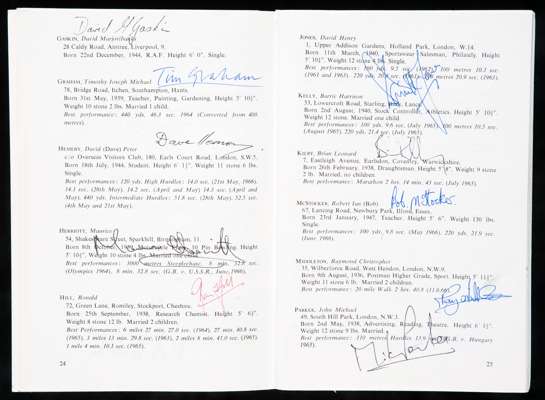 David G Gaskin
GASKIN, David Marjoribanks
28 Caldy Road, Aintree, Liverpool, 9.
Born 22nd December, 1944, R.A.F. Height 6' 0". Single.
GRAHAM, Timothy Joseph Michael
Tim Graham
78, Bridge Road, Itchen, Southampton, Hants.
Born 31st May, 1939, Teacher, Painting, Gardening, Height 5' 10½".
Weight 10 stone 2 lbs. Married 1 child.
Best performance: 440 yds. 46.3 sec. 1964 (Converted from 400
metres).
Dave Hemery
HEMERY, David (Dave) Peter
c/o Overseas Visitors Club, 180, Earls Court Road, London, S.W.5.
Born 18th July, 1944. Student. Height 6' 1½". Weight 11 stone 6 lbs.
Single.
Best performances: 120 yds. High Hurdles: 14.0 sec. (21st May, 1966).
HERRIOTT, Maurice
54, Shakespeare Street, Sparkhill, Birmingham, 11.
Born 8th October, 1939,
Height
5' 10". Weight 10 stone 4 lbs. Married one child
Best performance: 3000 metres Steeplechase, 8 min. 32.8 sec.
(Olympics 1964), 8 min. 32.8 sec. (G.B. v. U.S.S.R., June, 1966).
HILL, Ronald
Ron Hill
72, Green Lane, Romiley, Stockport, Cheshire.
Born 25th September, 1938, Research Chemist. Height 5' 6½".
Weight 8 stone 12 lb. Married 2 children.
Best Performances: 6 miles 27 min. 27.0 sec. (1964), 27 min. 40.8 sec.
(1965), 3 miles 13 min. 29.8 sec. (1965), 2 miles 8 min. 41.0 sec. (1965)
1 mile 4 min. 10.3 sec. (1965).
24
JONES, David Henry
1, Upper Addison Gardens, Holland Park, London, W.14.
Born 11th March, 1940, Sportswear Salesman, Philately, Height
5' 10½". Weight 12 stone 4 lbs. Single.
KELLY, Barrie Harrison
Born 2nd August, 1940, Stock Controller, Athletics. Height 5' 10".
Weight 12 stone. Married one child
(August 1965), 220 yds. 21.4 sec. (July 1965).
KILBY, Brian Leonard
7, Eastleigh Avenue, Earlsdon, Coventry, Warwickshire.
Born 26th February, 1938, Draughtsman, Height 5' 8". Weight 9 stone
2 lb. Married, no children.
Best performance: Marathon 2 hrs. 14 min. 43 sec. (July 1963).
Bob McStocker
MCSTOCKER, Robert Ian (Bob)
67, Lansing Road, Newbury Park, Ilford, Essex.
Born 23rd January, 1947, Teacher. Height 5' 6". Weight 130 lbs.
Single.
Best performance: 100 yds. 9.8 sec. (May 1966), 220 yds. 21.9 sec.
(June 1966).
MIDDLETON, Raymond Christopher
35, Wilberforce Road, West Hendon, London, N.W.9.
Born 9th August, 1936, Postman Higher Grade, Sport. Height 5' 11½".
Weight 11 stone 6 lb. Married 2 children.
Best performance: 20 mile Walk 2 hrs.
PARKER, John Michael
49, South Hill Park, London, N.W.3.
Born 2nd May, 1938, Advertising, Reading, Theatre. Height 6' 1½".
Weight 12 stone 9 lbs. Married
Best performance: 110 metres Hurdles 13.9 sec. (G.B. v. Hungary
1965).
Mike Parker
25